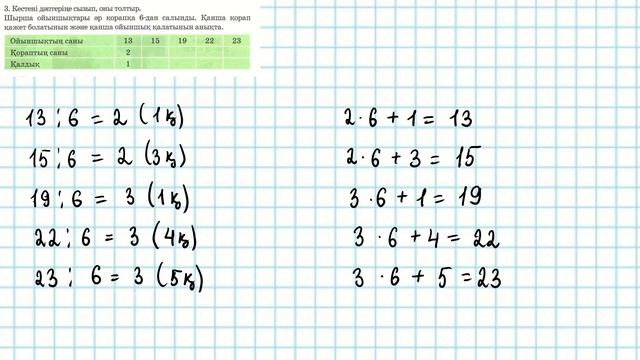 3. Кестені дәптеріңе сызып, оны толтыр.
Шырша ойыншықтары әр қорапқа 6-дан салынды. Қанша қорап
қажет болатынын және қанша ойыншық қалатынын анықта.
Ойыншықтың саны 13 15 19 22 23
Қораптың саны 2
Қалдық 1
13 : 6 = 2 (1қ) 2 · 6 + 1 = 13
15 : 6 = 2 (3қ) 2 · 6 + 3 = 15
19 : 6 = 3 (1қ) 3 · 6 + 1 = 19
22 : 6 = 3 (4қ) 3 · 6 + 4 = 22
23 : 6 = 3 (5қ) 3 · 6 + 5 = 23